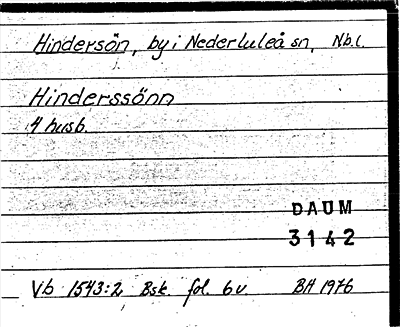 Hindersön, by i Nederluleå sn, Nb.l.
Hinderssönn
4 husb.
DAUM
3142
Vb 1543:2 Bsk. fol. 6v. BH 1976